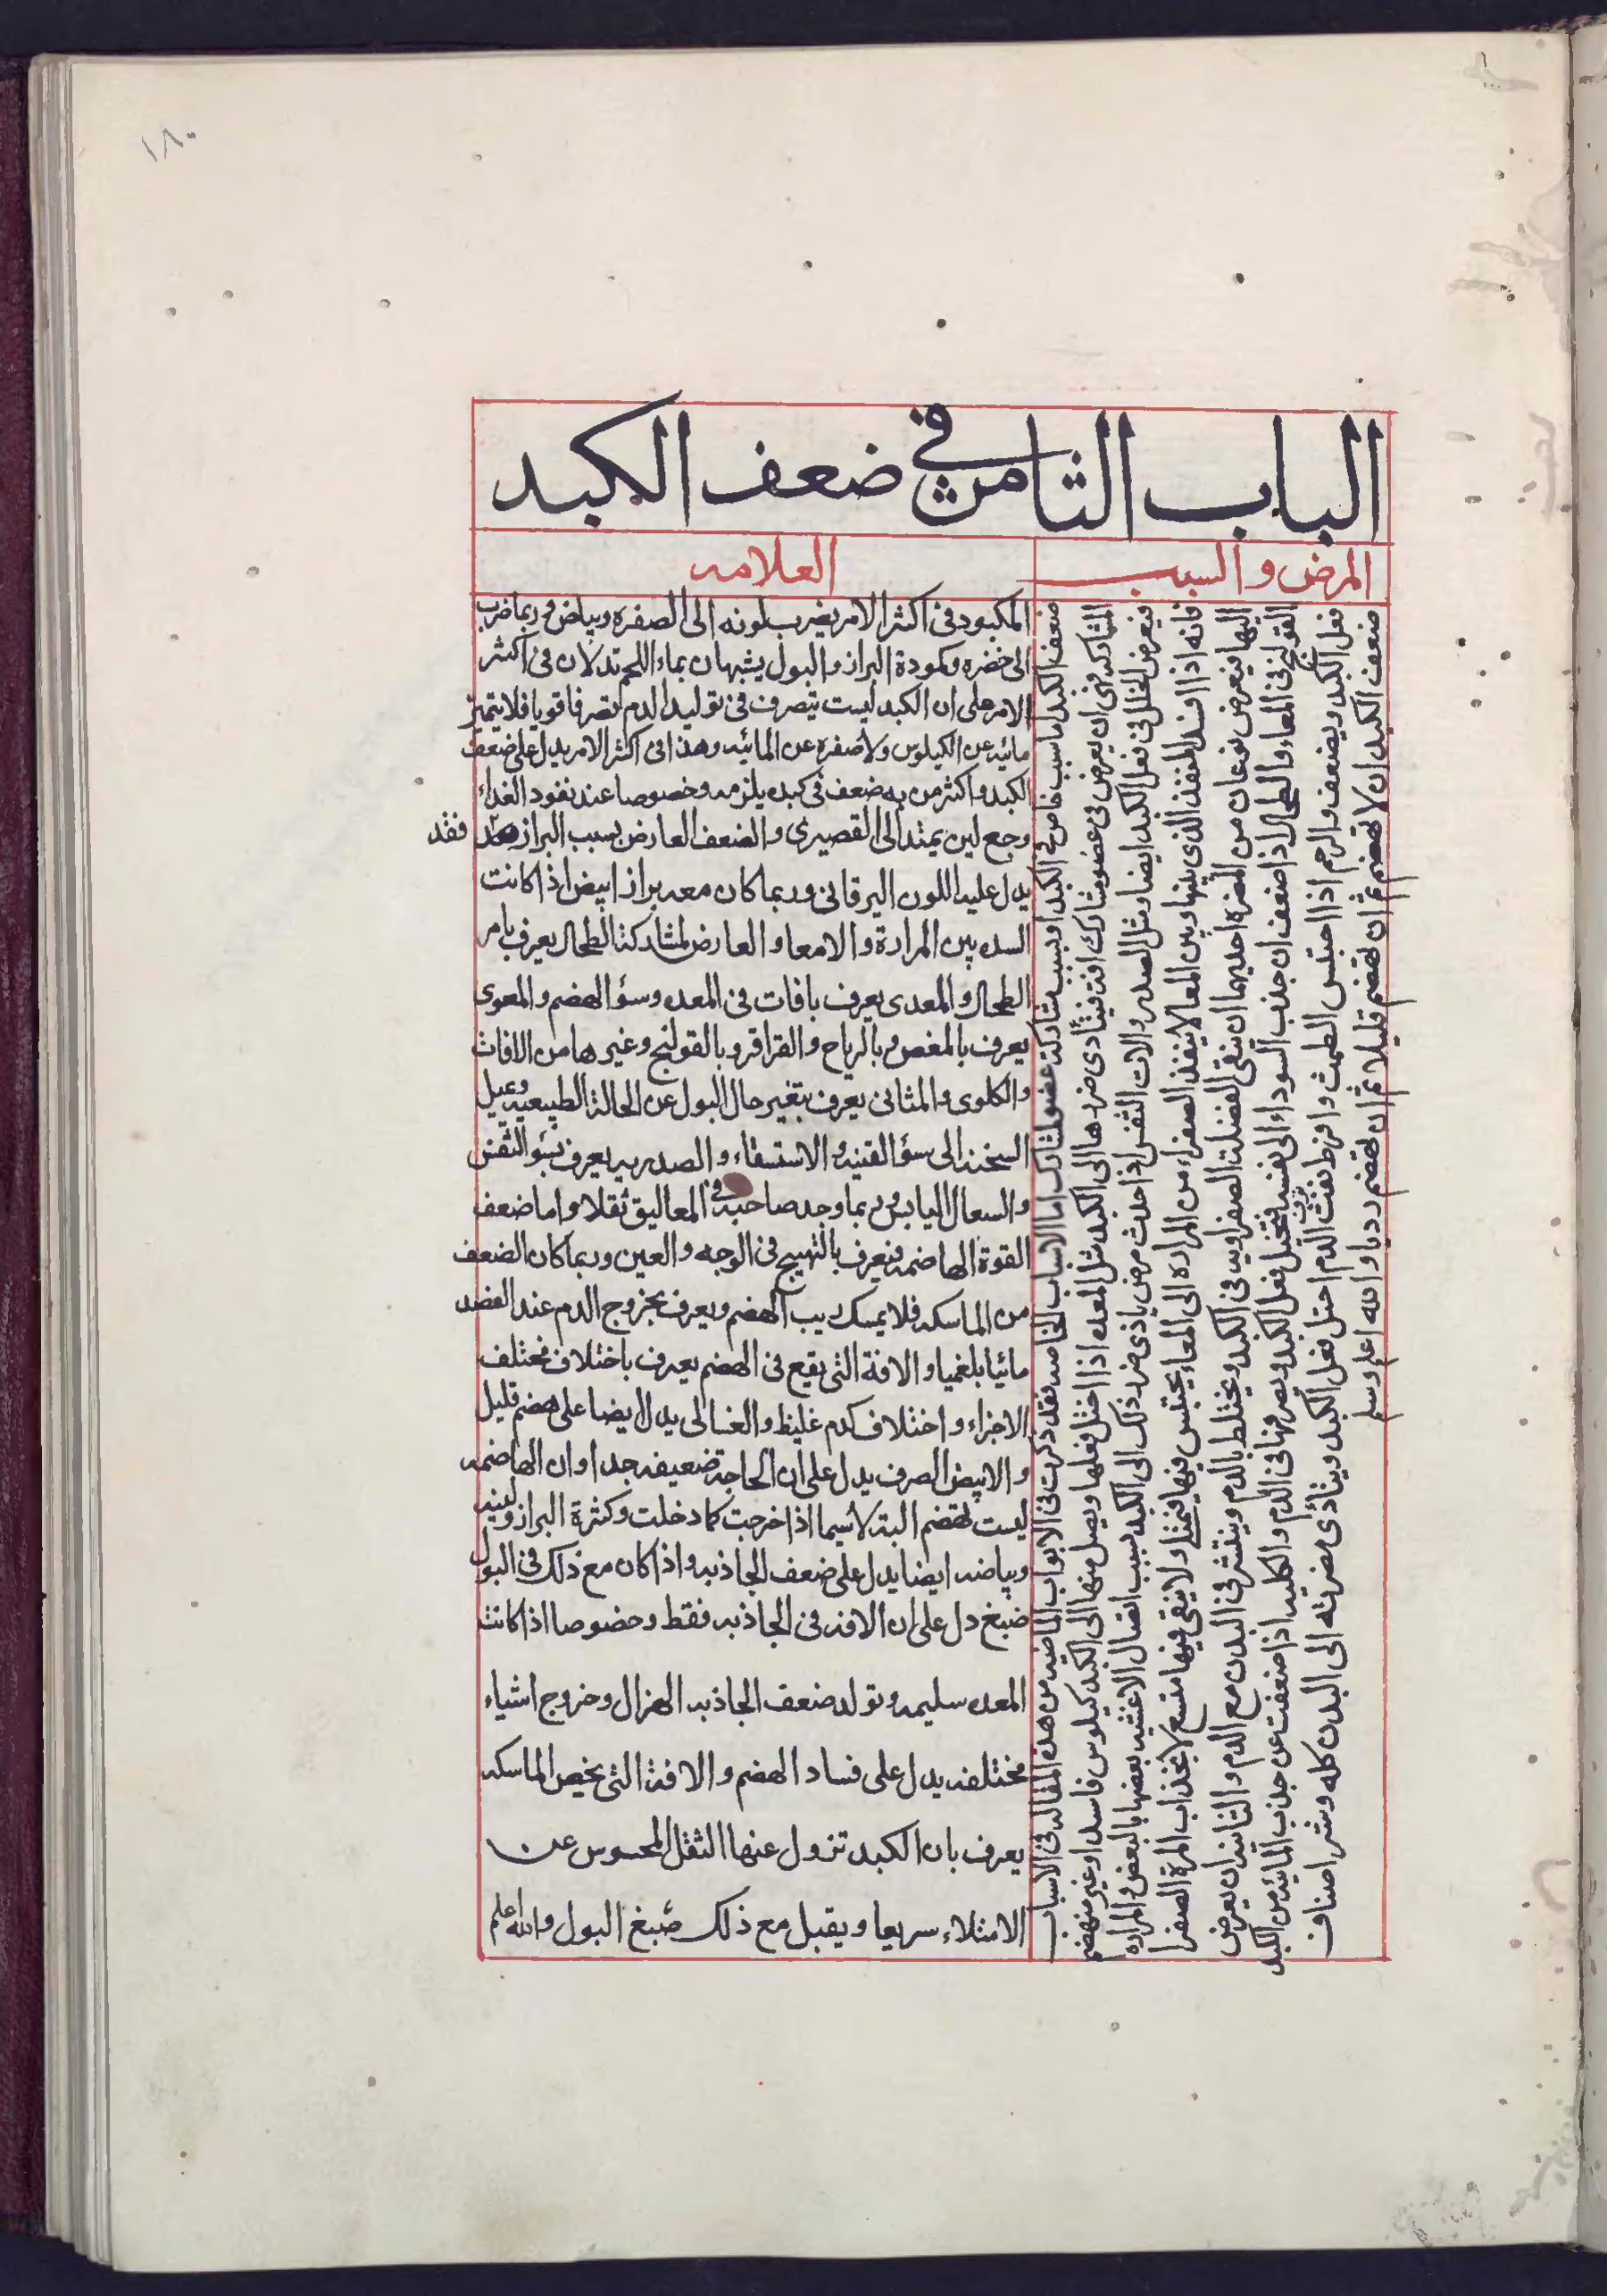 ١٨٠
الباب الثامن في ضعف الكبد
المرض والسبب
العلامه
ضعف الكبد اما بسبب خاص في الكبد او بسبب مشاركة عضو لمشارك اما الاسباب الخاصه فقد ذكرت في الابواب الماضيه من هذه المقاله في الاسباب
المشاركه فهي ان يعرض في عضو مشارك افة فيتأدى ضررها الى الكبد مثل المعده اذا اختل فعلها ويصل منها الى الكبد كيلوس فاسد او غير منهضم
فيعرض الخلل في فعل الكبد ايضا ومثل الصدر والات التنفس اذا حدث مرض يأذى ضرر ذلك الى الكبد بسبب اتصال الاغشيه بعضها بالبعض والمراره
فانه اذا انسد المنفذ الذى بينها وبين المعا لا ينفذ الصفراء من المراره الى المعاء يحتبس فيها فيمتلى ولا يبقى فيها متسع لانجذاب المرة الصفرا
اليها فيعرض نوعان من المضره احديهما ان يبقى الفضلة الصفراويه في الكبد ويختلط بالدم وينتشر في البدن مع الدم والثانيه ان يعرض
القولنج في المعاء والطحال اذا ضعف ان جذب السوداء الى نفسه فيختل فعل الكبد ويصرفها في الدم والكليه اذا ضعفت عن جذب المائيه من الكبد
فعل الكبد ويضعف والرحم اذا احتبس الطمث وافرط نفث الدم اختل فعل الكبد ويتأدى مضرته الى البدن كله وشر اصناف
ضعف الكبد ان لا تهضم ثم ان تهضم قليلا ثم ان تهضم رديا والله اعلم وسلم
المكبود في اكثر الامر يضرب لونه الى الصفره وبياض وربما ضرب
الى خضره وكمودة البراز والبول يشبهان بماء اللحم تدلان في اكثر
الامر على ان الكبد ليست تتصرف في توليد الدم تصرفا قويا فلا يتميز
مائيه عن الكيلوس ولا صفره عن المائيه وهذا في اكثر الامر يدل على ضعف
الكبد واكثر من به ضعف في كبده يلزمه وخصوصا عند نفود الغداء
وجع لين يمتد الى القصيرى والضعف العارض بسبب البراز فقد
يدل عليه اللون اليرقاني وربما كان معه براز ابيض اذا كانت
السده بين المرارة والامعا والعارض لمشاركة الطحال يعرف بامر
الطحال والمعدى يعرف بافات في المعده وسؤ الهضم والمعوى
يعرف بالمغص وبالرياح والقراقر وبالقولنج وغيرها من الافات
والكلوى والمثانى يعرف بتغير حال البول عن الحالة الطبيعيه وميل
السخنه الى سؤ القنيه والاستسقاء والصدريه يعرف بسو التنفس
والسعال اليابس وربما وجد صاحبه في المعاليق ثقلا واما ضعف
القوة الهاضمه فيعرف بالتهيج في الوجه والعين وربما كان الضعف
من الماسكه فلا يمسك ريب الهضم ويعرف بخروج الدم عند الفصد
مائيا بلغميا والافة التى يقع في الهضم يعرف باختلاف مختلف
الاجزاء واختلاف كدم غليظ والغسالى يدل ايضا على هضم قليل
والابيض الصرف يدل على ان الجاذبة ضعيفه جدا وان الهاضمه
ليست تهضم البته لاسيما اذا خرجت كما دخلت وكثرة البراز ولينه
وبياضه ايضا يدل على ضعف الجاذبه واذا كان مع ذلك في البول
صبغ دل على ان الافه في الجاذبه فقط وخصوصا اذا كانت
المعده سليمه وتولد ضعف الجاذبه الهزال وخروج اشياء
مختلفه يدل على فساد الهضم والافة التى يخص الماسكه
يعرف بان الكبد تزول عنها الثقل المحسوس عن
الامتلاء سريعا ويقبل مع ذلك صبغ البول والله اعلم